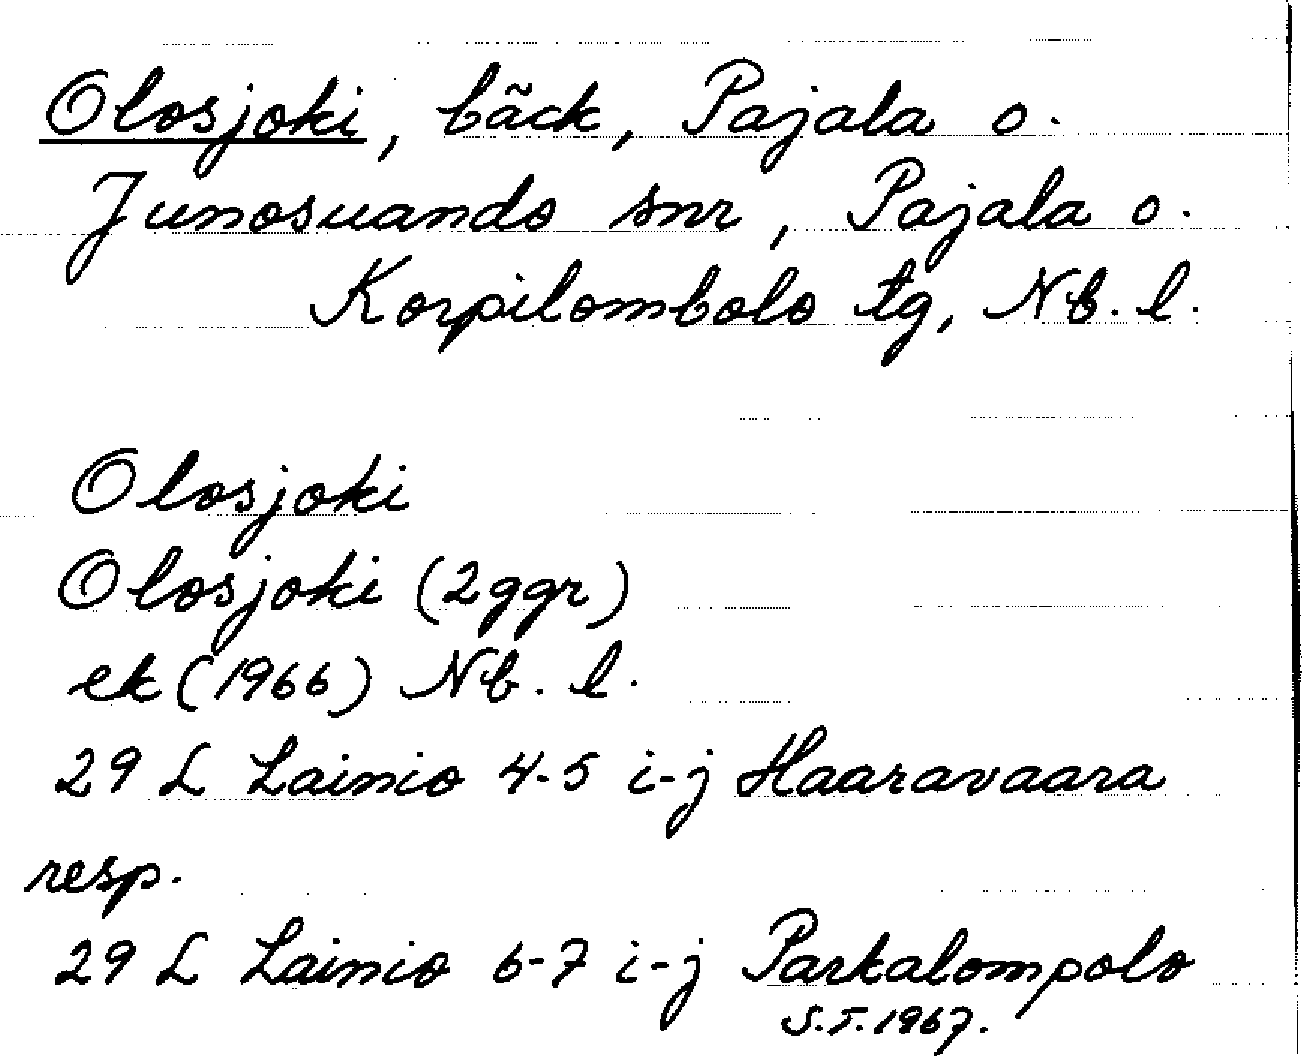 Olosjoki, bäck, Pajala o.
Junosuando snr, Pajala o.
Korpilombolo tg, Nb. l.
Olosjoki
Olosjoki (2ggr)
ek (1966) Nb. l.
29 L Lainio 4-5 i-j Haaravaara
resp.
29 L Lainio 6-7 i-j Parkalompolo
S.T. 1967.